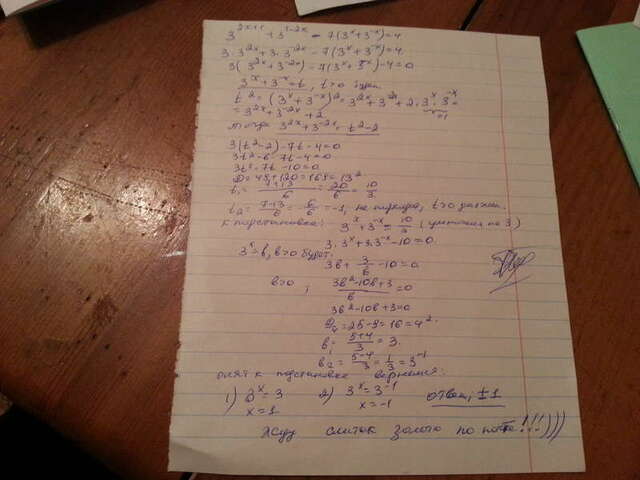 3^{2x+1} + 3^{1-2x} - 7(3^x+3^{-x})=4
3·3^{2x}+3·3^{-2x} - 7(3^x+3^{-x})=4
3(3^{2x}+3^{-2x}) - 7(3^x+3^{-x})-4=0
3^x+3^{-x}=t, t>0 будет
t^2=(3^x+3^{-x})^2=3^{2x}+3^{-2x}+2·3^x·3^{-x}=
=3^{2x}+3^{-2x}+2
=1
тогда 3^{2x}+3^{-2x}=t^2-2
3(t^2-2)-7t-4=0
3t^2-6-7t-4=0
3t^2-7t-10=0
D=49+120=169=13^2
t_1=\frac{7+13}{6}=\frac{20}{6}=\frac{10}{3}
t_2=\frac{7-13}{6}=-\frac{6}{6}=-1, не t>0 должен.
к подстановке: 3^x+3^{-x}=\frac{10}{3} (умножим на 3)
3·3^x+3·3^{-x}-10=0
3^x=b, b>0 будет.
3b+\frac{3}{b}-10=0
b>0, \frac{3b^2-10b+3}{b}=0
3b^2-10b+3=0
D/4=25-9=16=4^2
b_1=\frac{5+4}{3}=3
b_2=\frac{5-4}{3}=\frac{1}{3}=3^{-1}
опять к подстановке вернемся:
1) 3^x=3 2) 3^x=3^{-1}
x=1 x=-1 ответ: ±1
жду слиток золота по почте!!!)))